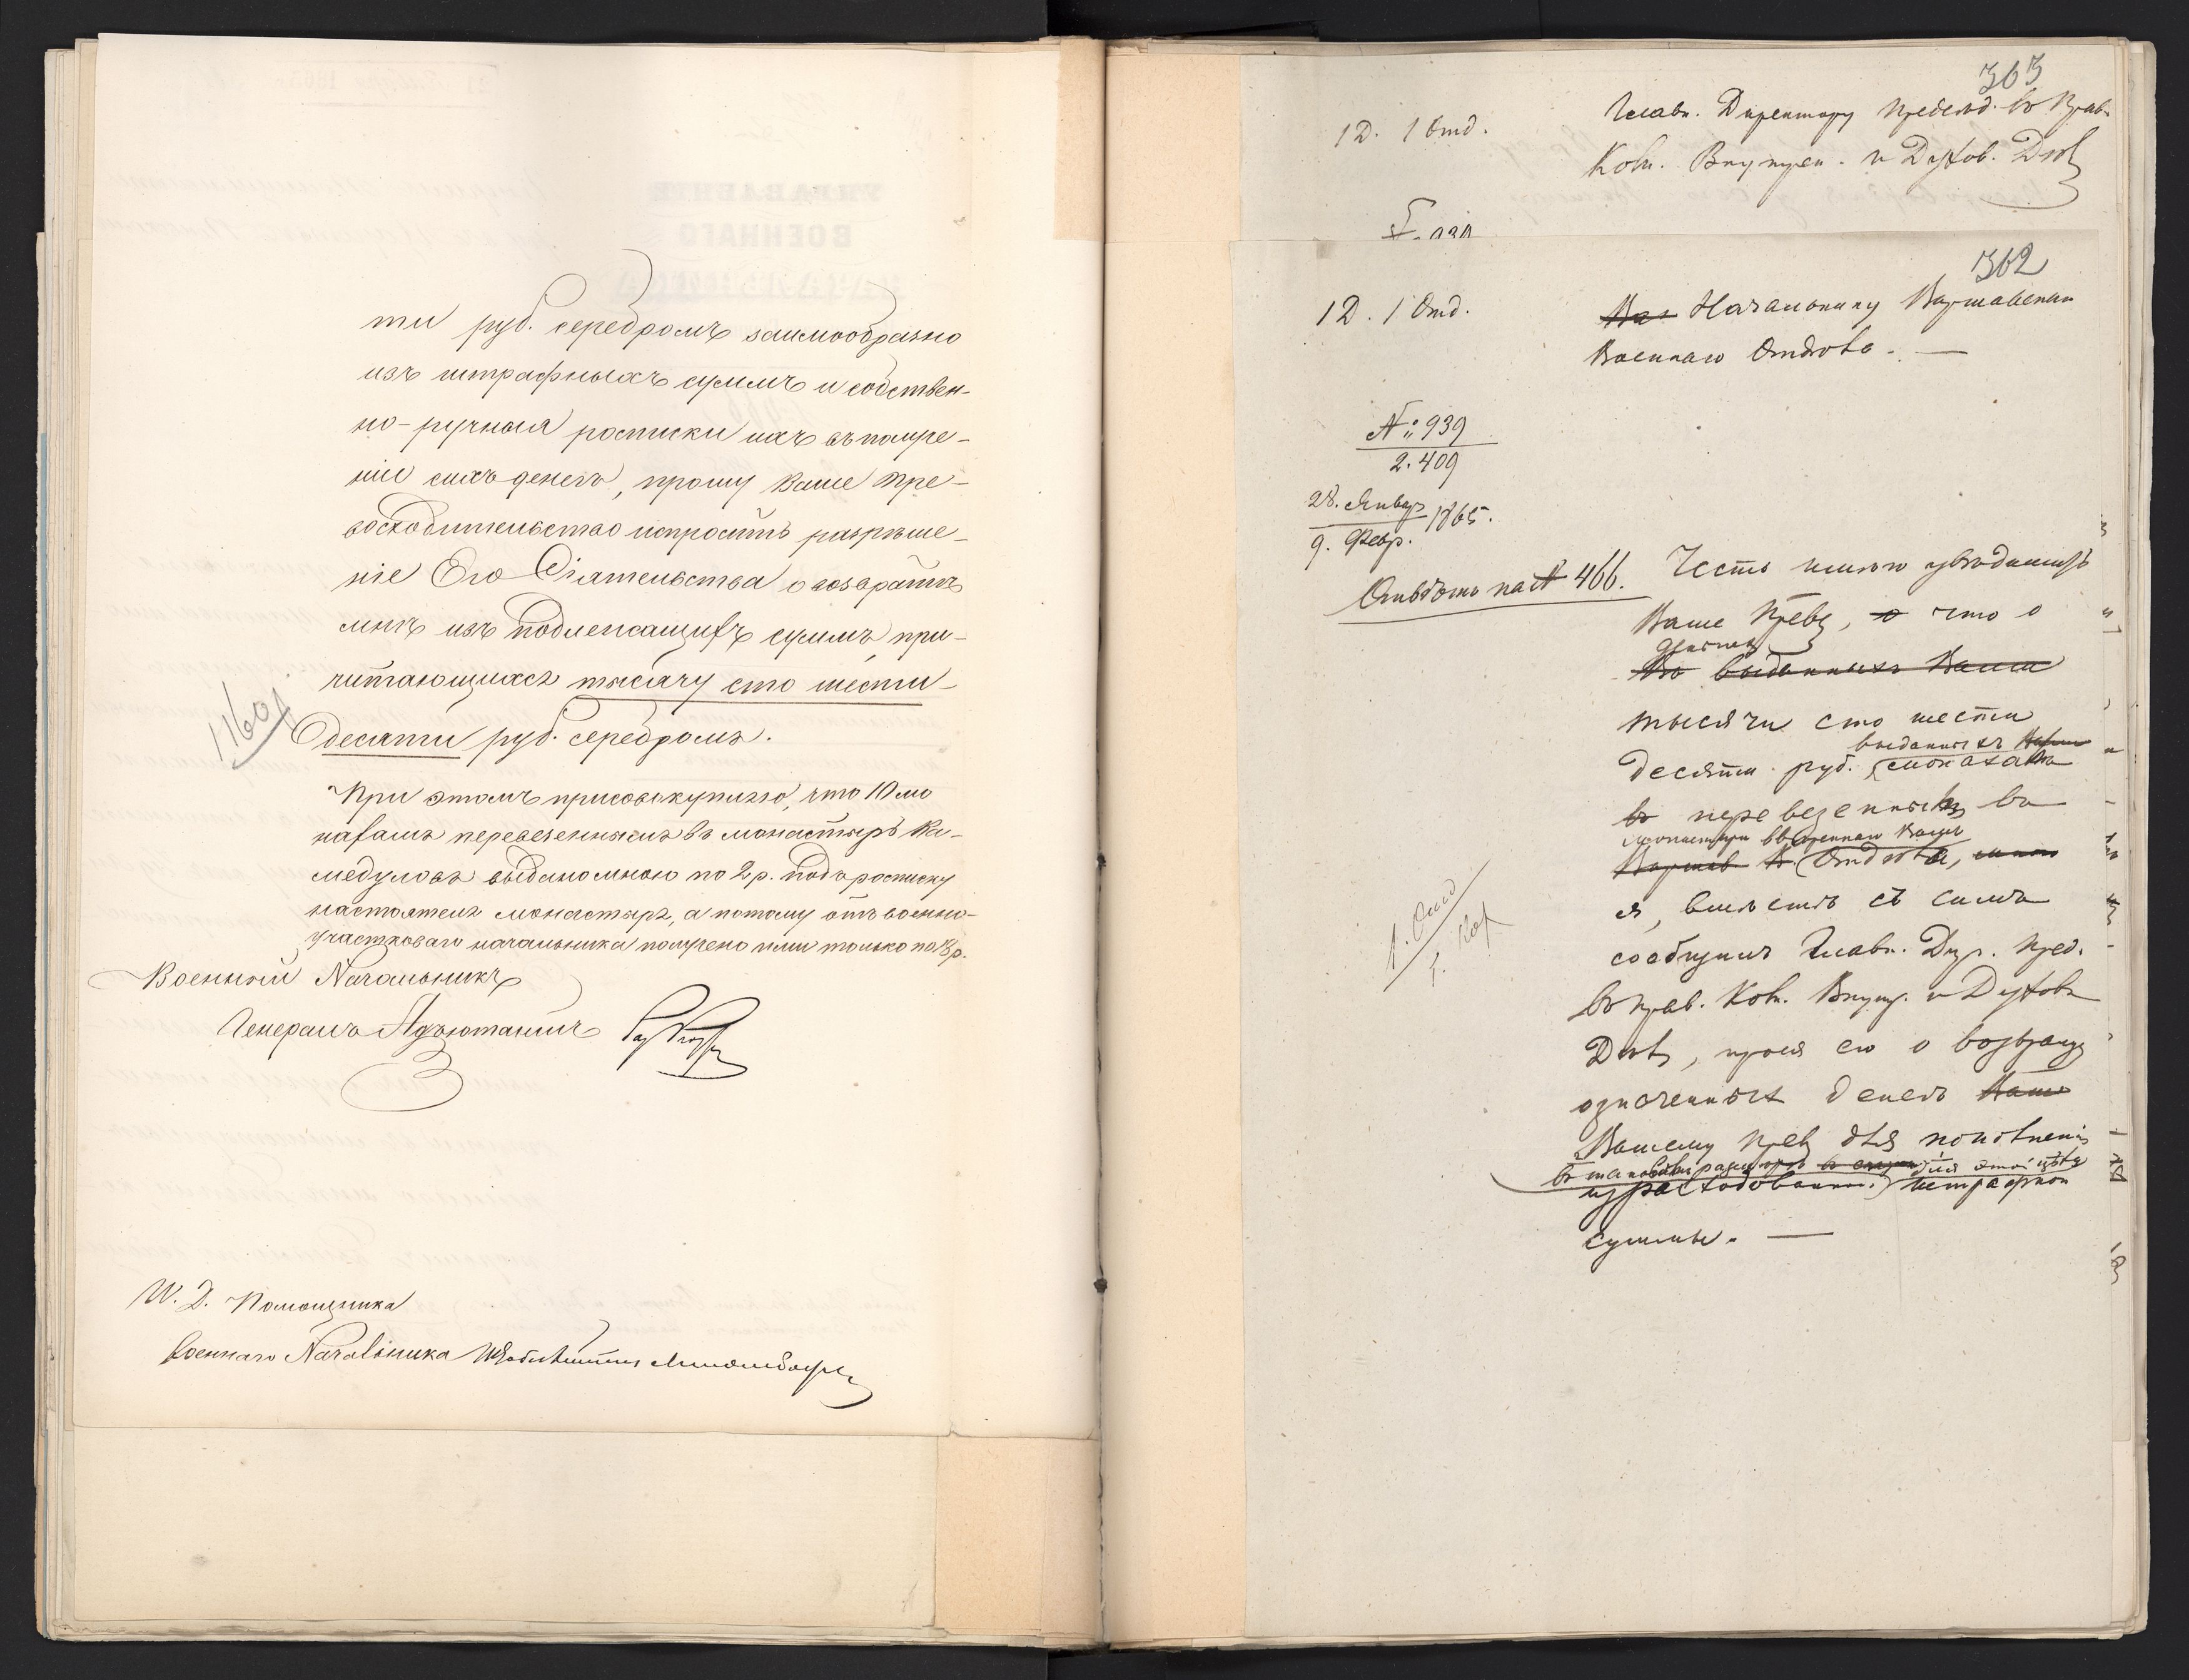 ти руб. серебромъ заимообразно
изъ штрафныхъ суммъ и собствен-
но-ручныя росписки ихъ въ получе-
ніи сихъ денегъ, прошу Ваше Пре-
восходительство испросить разрѣше-
ніе Его Сіятельства о возвратѣ
мнѣ изъ подлежащихъ суммъ при-
читающихся тысячу сто шести-
десяти руб. серебромъ.
1160
При этомъ присовокупляю, что 10 мо
нахамъ перевезеннымъ въ монастырь Ка-
медуловъ выдано мною по 2 р. подъ росписку
настоятеля монастыря, а потому отъ военно-
участковаго начальника получено ими только по 8 р.
Военный Начальникъ
Генералъ Адъютантъ
И. Д. Помощника
Военнаго Начальника
363
1 Д. 1 Отд.
Главн. Директору Предсѣд. въ Прав.
Ком. Внутрен. и Духов. Дѣлъ
362
1 Д. 1 Отд.
Начальнику Варшавскаго
Военнаго Отдѣла. —
№ 939
2.409
28. Январ.
9. Февр. 1865.
Отвѣтъ на № 466.
Честь имѣю увѣдомить
Ваше Прев, что о
деньгахъ
Во выданныхъ Вами
тысячи сто шести
выданныхъ
десяти руб. монахамъ
перевезенныхъ въ
монастыри ввѣреннаго Вамъ
Отдѣла,
я, вмѣстѣ съ симъ
сообщилъ Главн. Дир. Пред.
въ Прав. Ком. Внутр. и Духовн
Дѣлъ, прося его о возвращ
означенныхъ денегъ Вамъ
Вашему Прев для пополненія
для этой цѣли
израсходованной штрафной
суммы. —
1. Отд